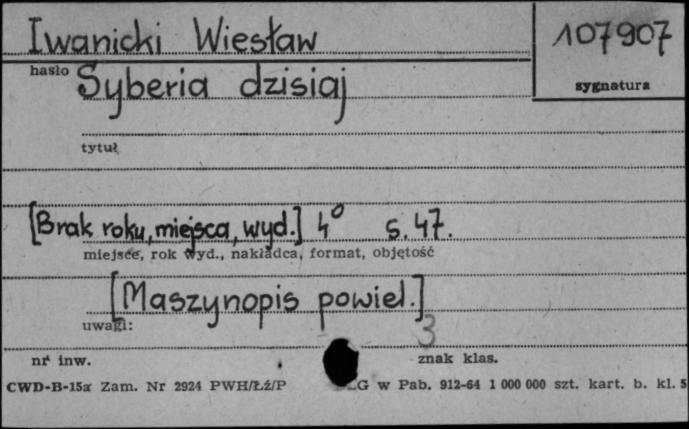 Iwanicki Wiesław
107907
hasło
sygnatura
Syberia dzisiaj
tytuł
[Brak roku, miejsca, wyd.] 4° s. 47.
miejsce, rok wyd., nakładca, format, objętość
[Maszynopis powiel.]
uwagi:
3
nr inw.
znak klas.
CWD-B-15a Zam. Nr 2924 PWH/Łź/P G w Pab. 912-64 1 000 000 szt. kart. b. kl. 5